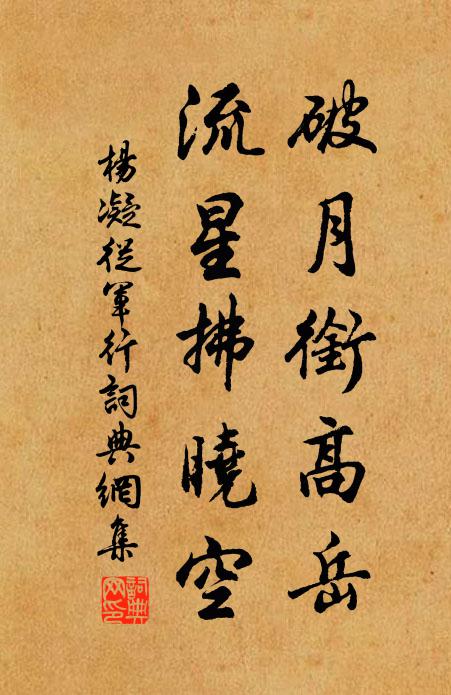 破月銜高岳
流星拂曉空
楊凝從軍行詞典網集
詞典
网印